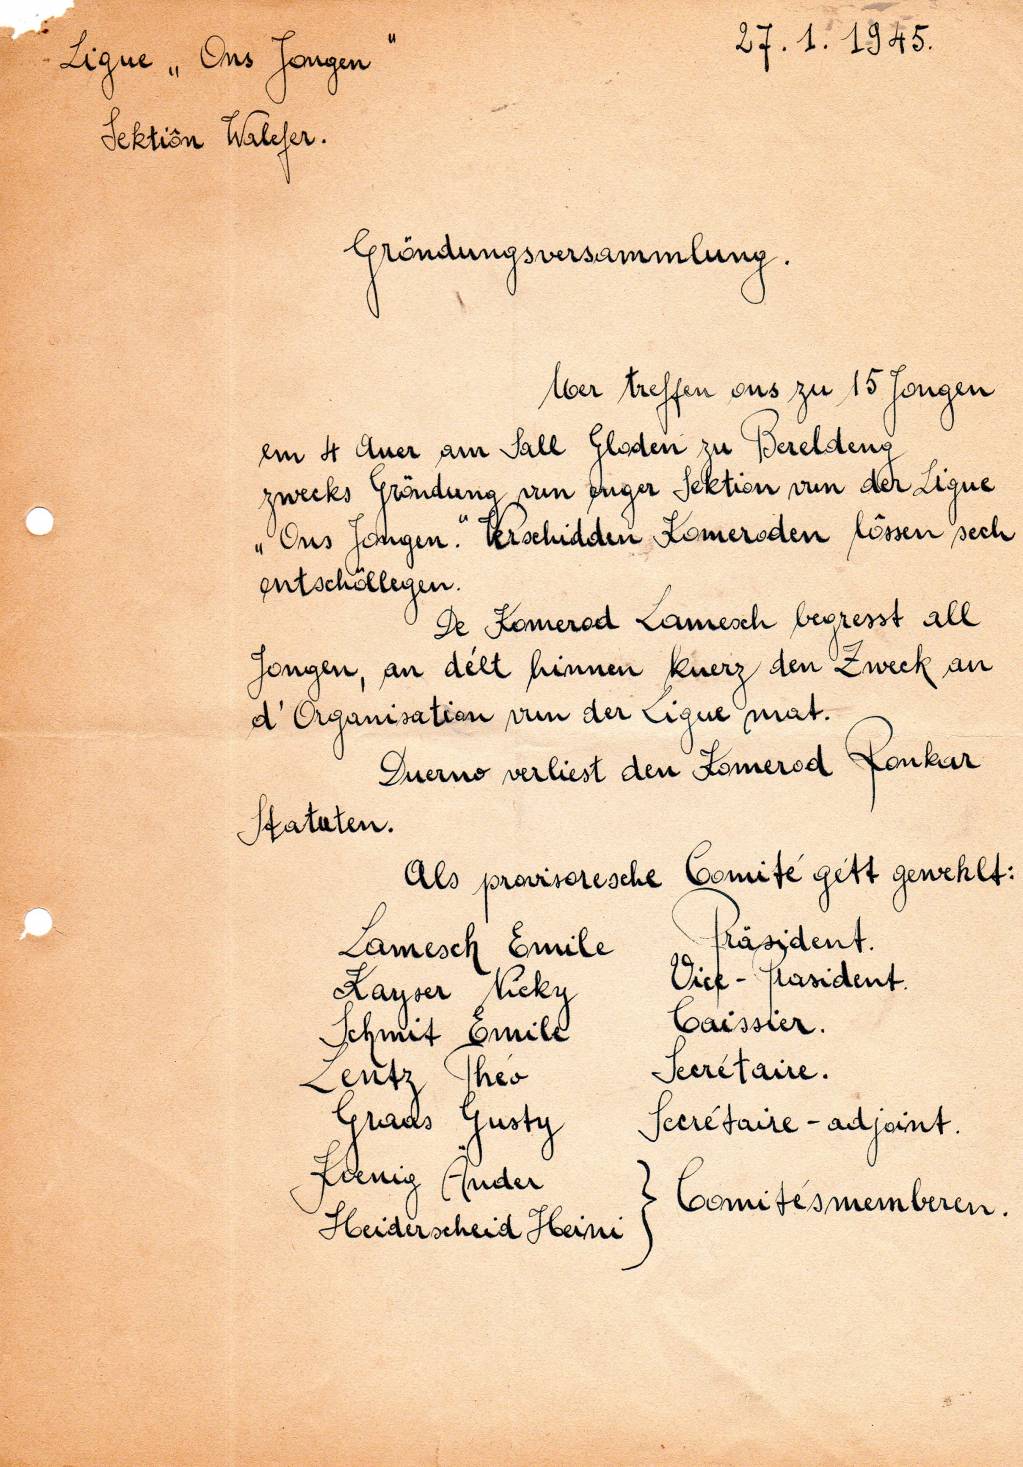 Ligue „Ons Jongen"
27.1.1945.
Sektiôn Walefer.
Gröndungsversammlung.
Mer treffen ons zu 15 Jongen
em 4 Auer am Sall Gloden zu Bereldeng
zwecks Gröndung vun enger Sektion vun der Ligue
„Ons Jongen." Verschidden Komeroden lôssen sech
entschöllegen.
De Komerod Lamesch begresst all
Jongen, an délt hinnen kuerz den Zweck an
d'Organisation vun der Ligue mat.
Duerno verliest den Komerod Ronkar
Statuten.
Als provisoresche Comité gétt gewehlt:
Lamesch Emile Präsident.
Kayser Nicky Vice-Präsident.
Schmit Emile Caissier.
Lentz Théo Secrétaire.
Graas Gusty Secrétaire-adjoint.
Koenig Änder
Heiderscheid Heini } Comitésmemberen.